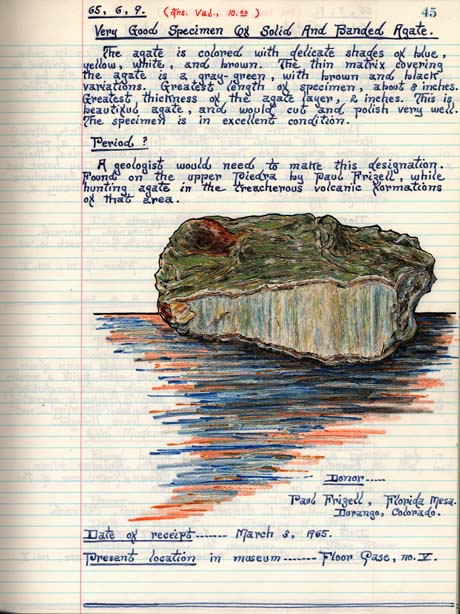 65, 6, 9. (Ins. Val., 10.00) 45
Very Good Specimen Of Solid And Banded Agate.
The agate is colored with delicate shades of blue,
yellow, white, and brown. The thin matrix covering
the agate is a gray-green, with brown and black
variations. Greatest length of specimen, about 8 inches.
Greatest thickness of the agate layer, 2 inches. This is
beautiful agate, and would cut and polish very well.
The specimen is in excellent condition.
Period ?
A geologist would need to make this designation.
Found on the upper Piedra by Paul Frizell, while
hunting agate in the treacherous volcanic formations
of that area.
Donor-----
Paul Frizell, Florida Mesa.
Durango, Colorado.
Date of receipt------- March 3, 1965.
Present location in museum------- Floor Case, no. V.